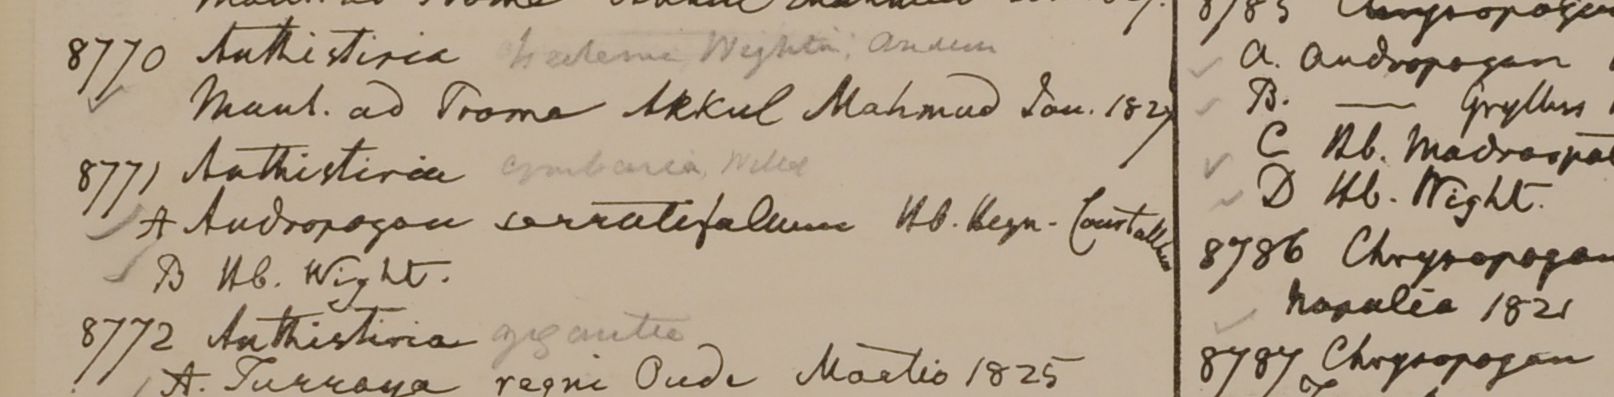 8770 Anthistiria Iseilema Wightii, Anders
Mont. ad Prome Akkul Mahmud Jan. 1827
8771 Anthistiria cymbaria, Willd
A Andropogon serratifolium Hb. Heyn.
B Hb. Wight.
8772 Anthistiria gigantea
A. Turraya regni Oude Martio 1825
8785
A. Andropogon
B. — Gryllus
C Hb. Madrasp
D Hb. Wight.
8786 Chrysopogon
Napalia 1821
8787 Chrysopogon